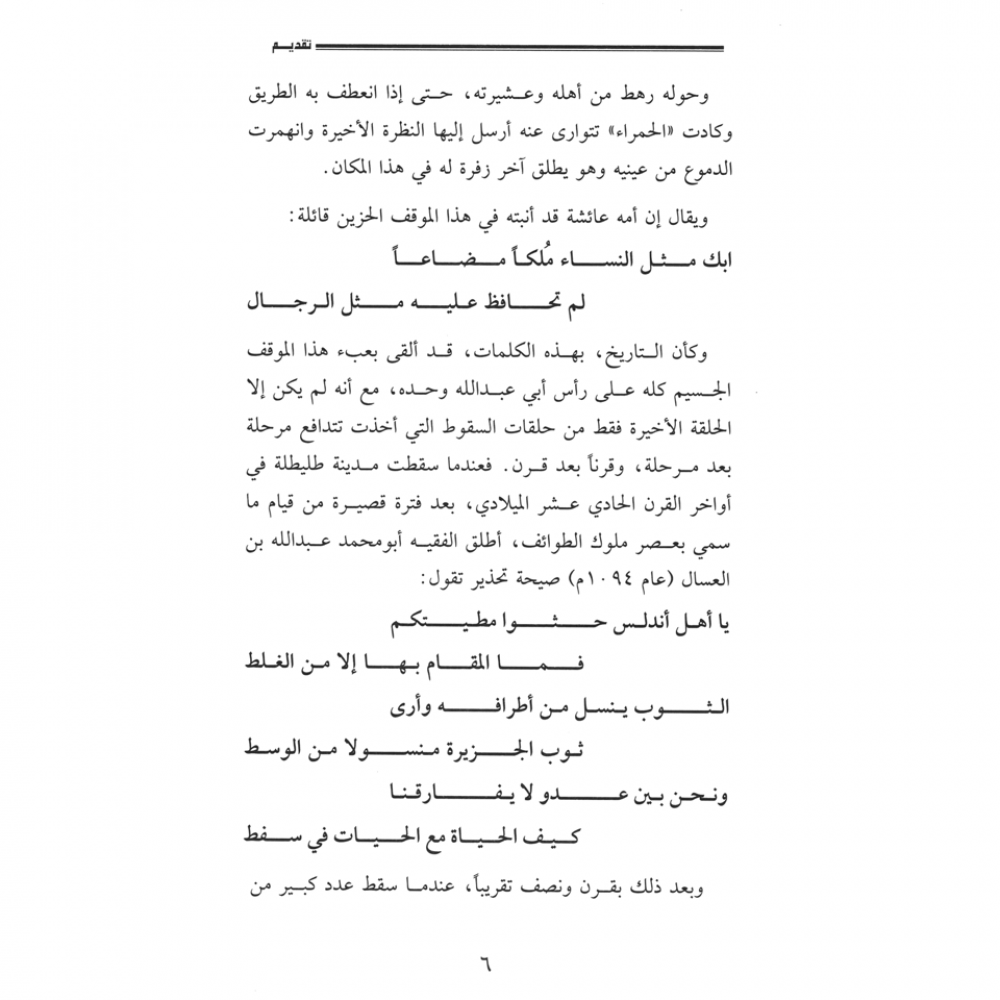 تقديم
وحوله رهط من أهله وعشيرته، حتى إذا انعطف به الطريق
وكادت «الحمراء» تتوارى عنه أرسل إليها النظرة الأخيرة وانهمرت
الدموع من عينيه وهو يطلق آخر زفرة له في هذا المكان.
ويقال إن أمه عائشة قد أنبته في هذا الموقف الحزين قائلة:
ابك مثل النساء مُلكاً مضاعاً
لم تحافظ عليه مثل الرجال
وكأن التاريخ، بهذه الكلمات، قد ألقى بعبء هذا الموقف
الجسيم كله على رأس أبي عبدالله وحده، مع أنه لم يكن إلا
الحلقة الأخيرة فقط من حلقات السقوط التي أخذت تتدافع مرحلة
بعد مرحلة، وقرناً بعد قرن. فعندما سقطت مدينة طليطلة في
أواخر القرن الحادي عشر الميلادي، بعد فترة قصيرة من قيام ما
سمي بعصر ملوك الطوائف، أطلق الفقيه أبومحمد عبدالله بن
العسال (عام ١٠٩٤م) صيحة تحذير تقول:
يا أهل أندلس حثوا مطيتكم
فما المقام بها إلا من الغلط
الثوب ينسل من أطرافه وأرى
ثوب الجزيرة منسولا من الوسط
ونحن بين عدو لا يفارقنا
كيف الحياة مع الحيات في سفط
وبعد ذلك بقرن ونصف تقريباً، عندما سقط عدد كبير من
٦